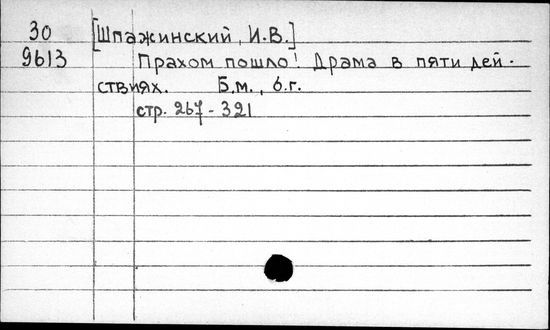 30 [Шпажинский, И.В.]
9613 Прахом пошло! Драма в пяти дей-
ствиях. Б.м., б.г.
стр. 267-321